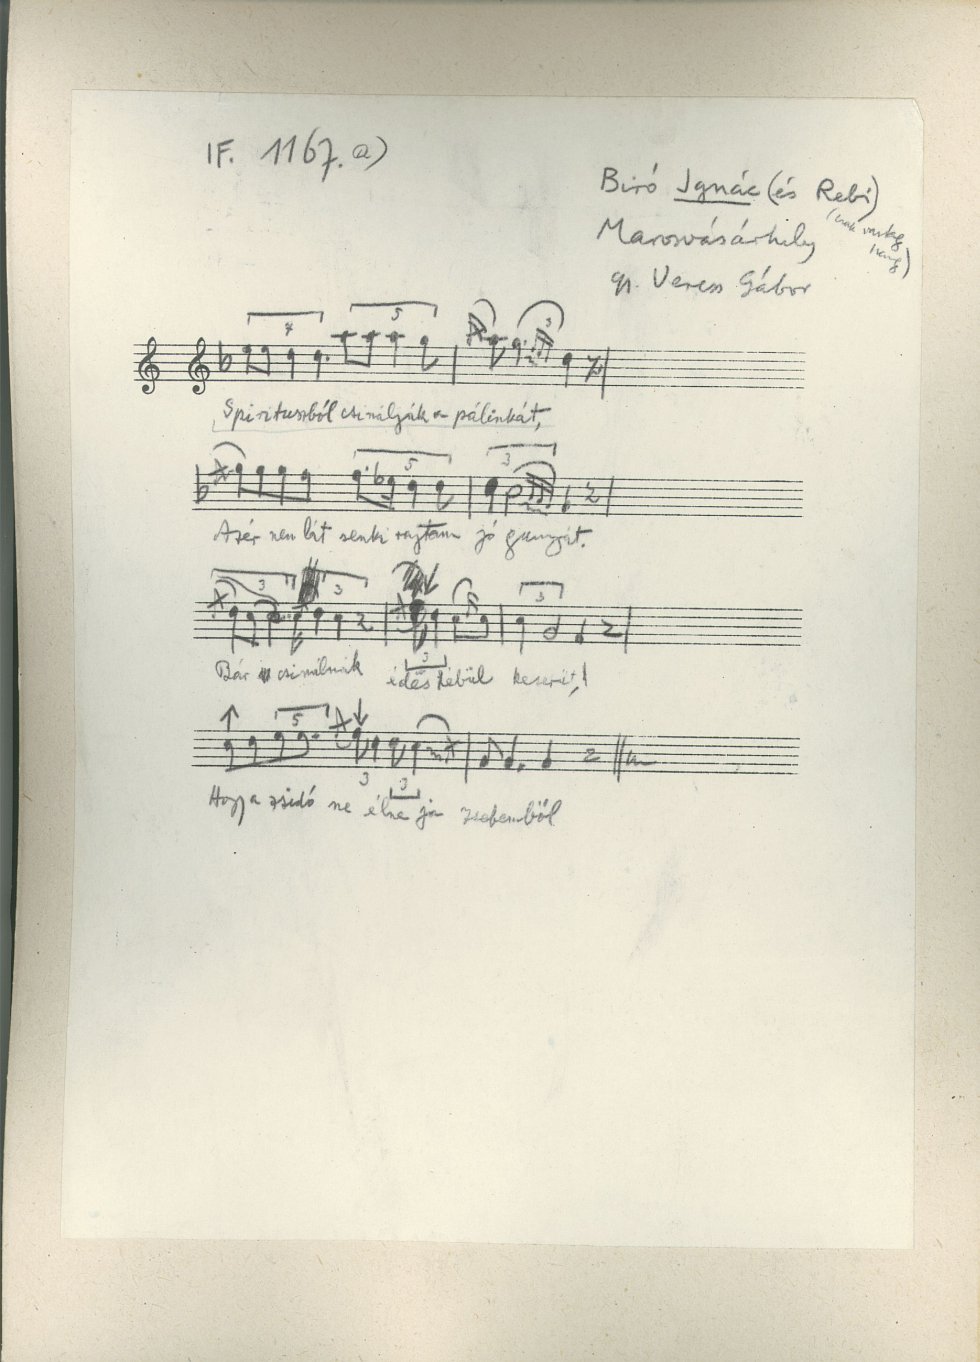 IF. 1167. a)
Biró Ignác (és Rebi)
(csak vastag
hang)
Marosvásárhely
gy. Veress Gábor
4 5 3
Spirituszból csinálják a pálinkát,
5 3
Azér nem lát senki rajtam jó gunyát.
3 3 3 3
Bár csinálnák édes tébül keserüt,!
5 3 3
Hogy a zsidó ne élne ja zsebemből